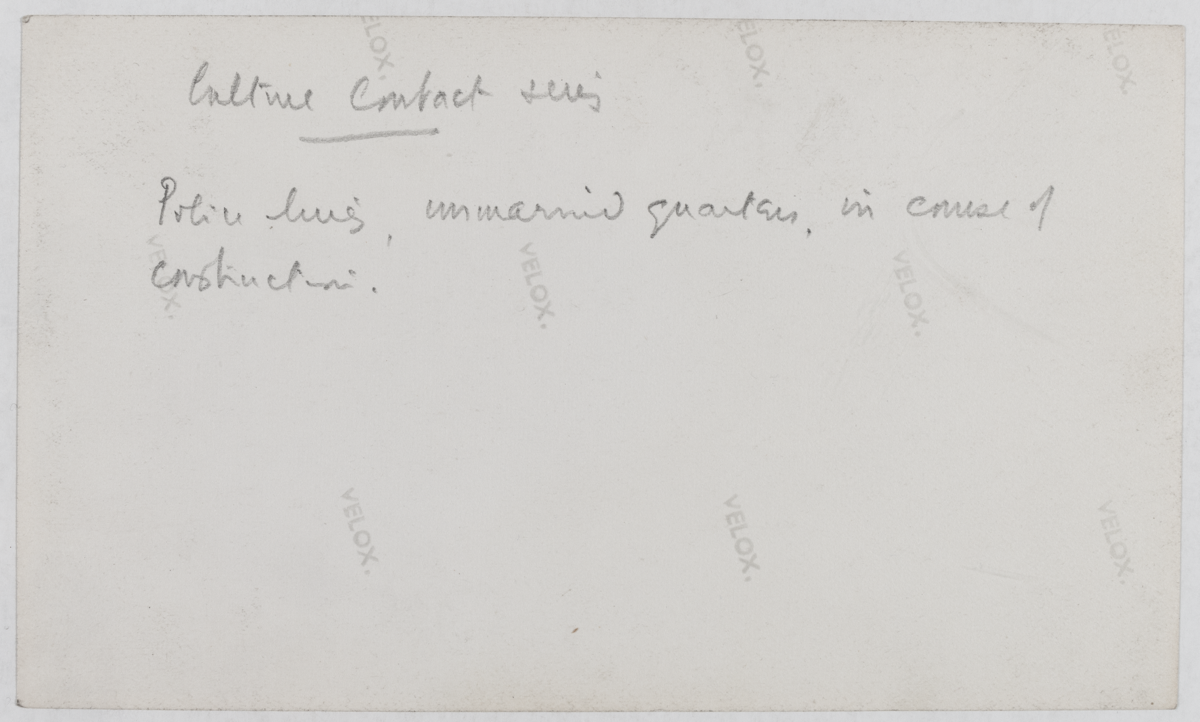 VELOX. VELOX. VELOX
Culture Contact series
Police lines, unmarried quarters, in course of
construction.
VELOX. VELOX. VELOX.
VELOX. VELOX. VELOX.